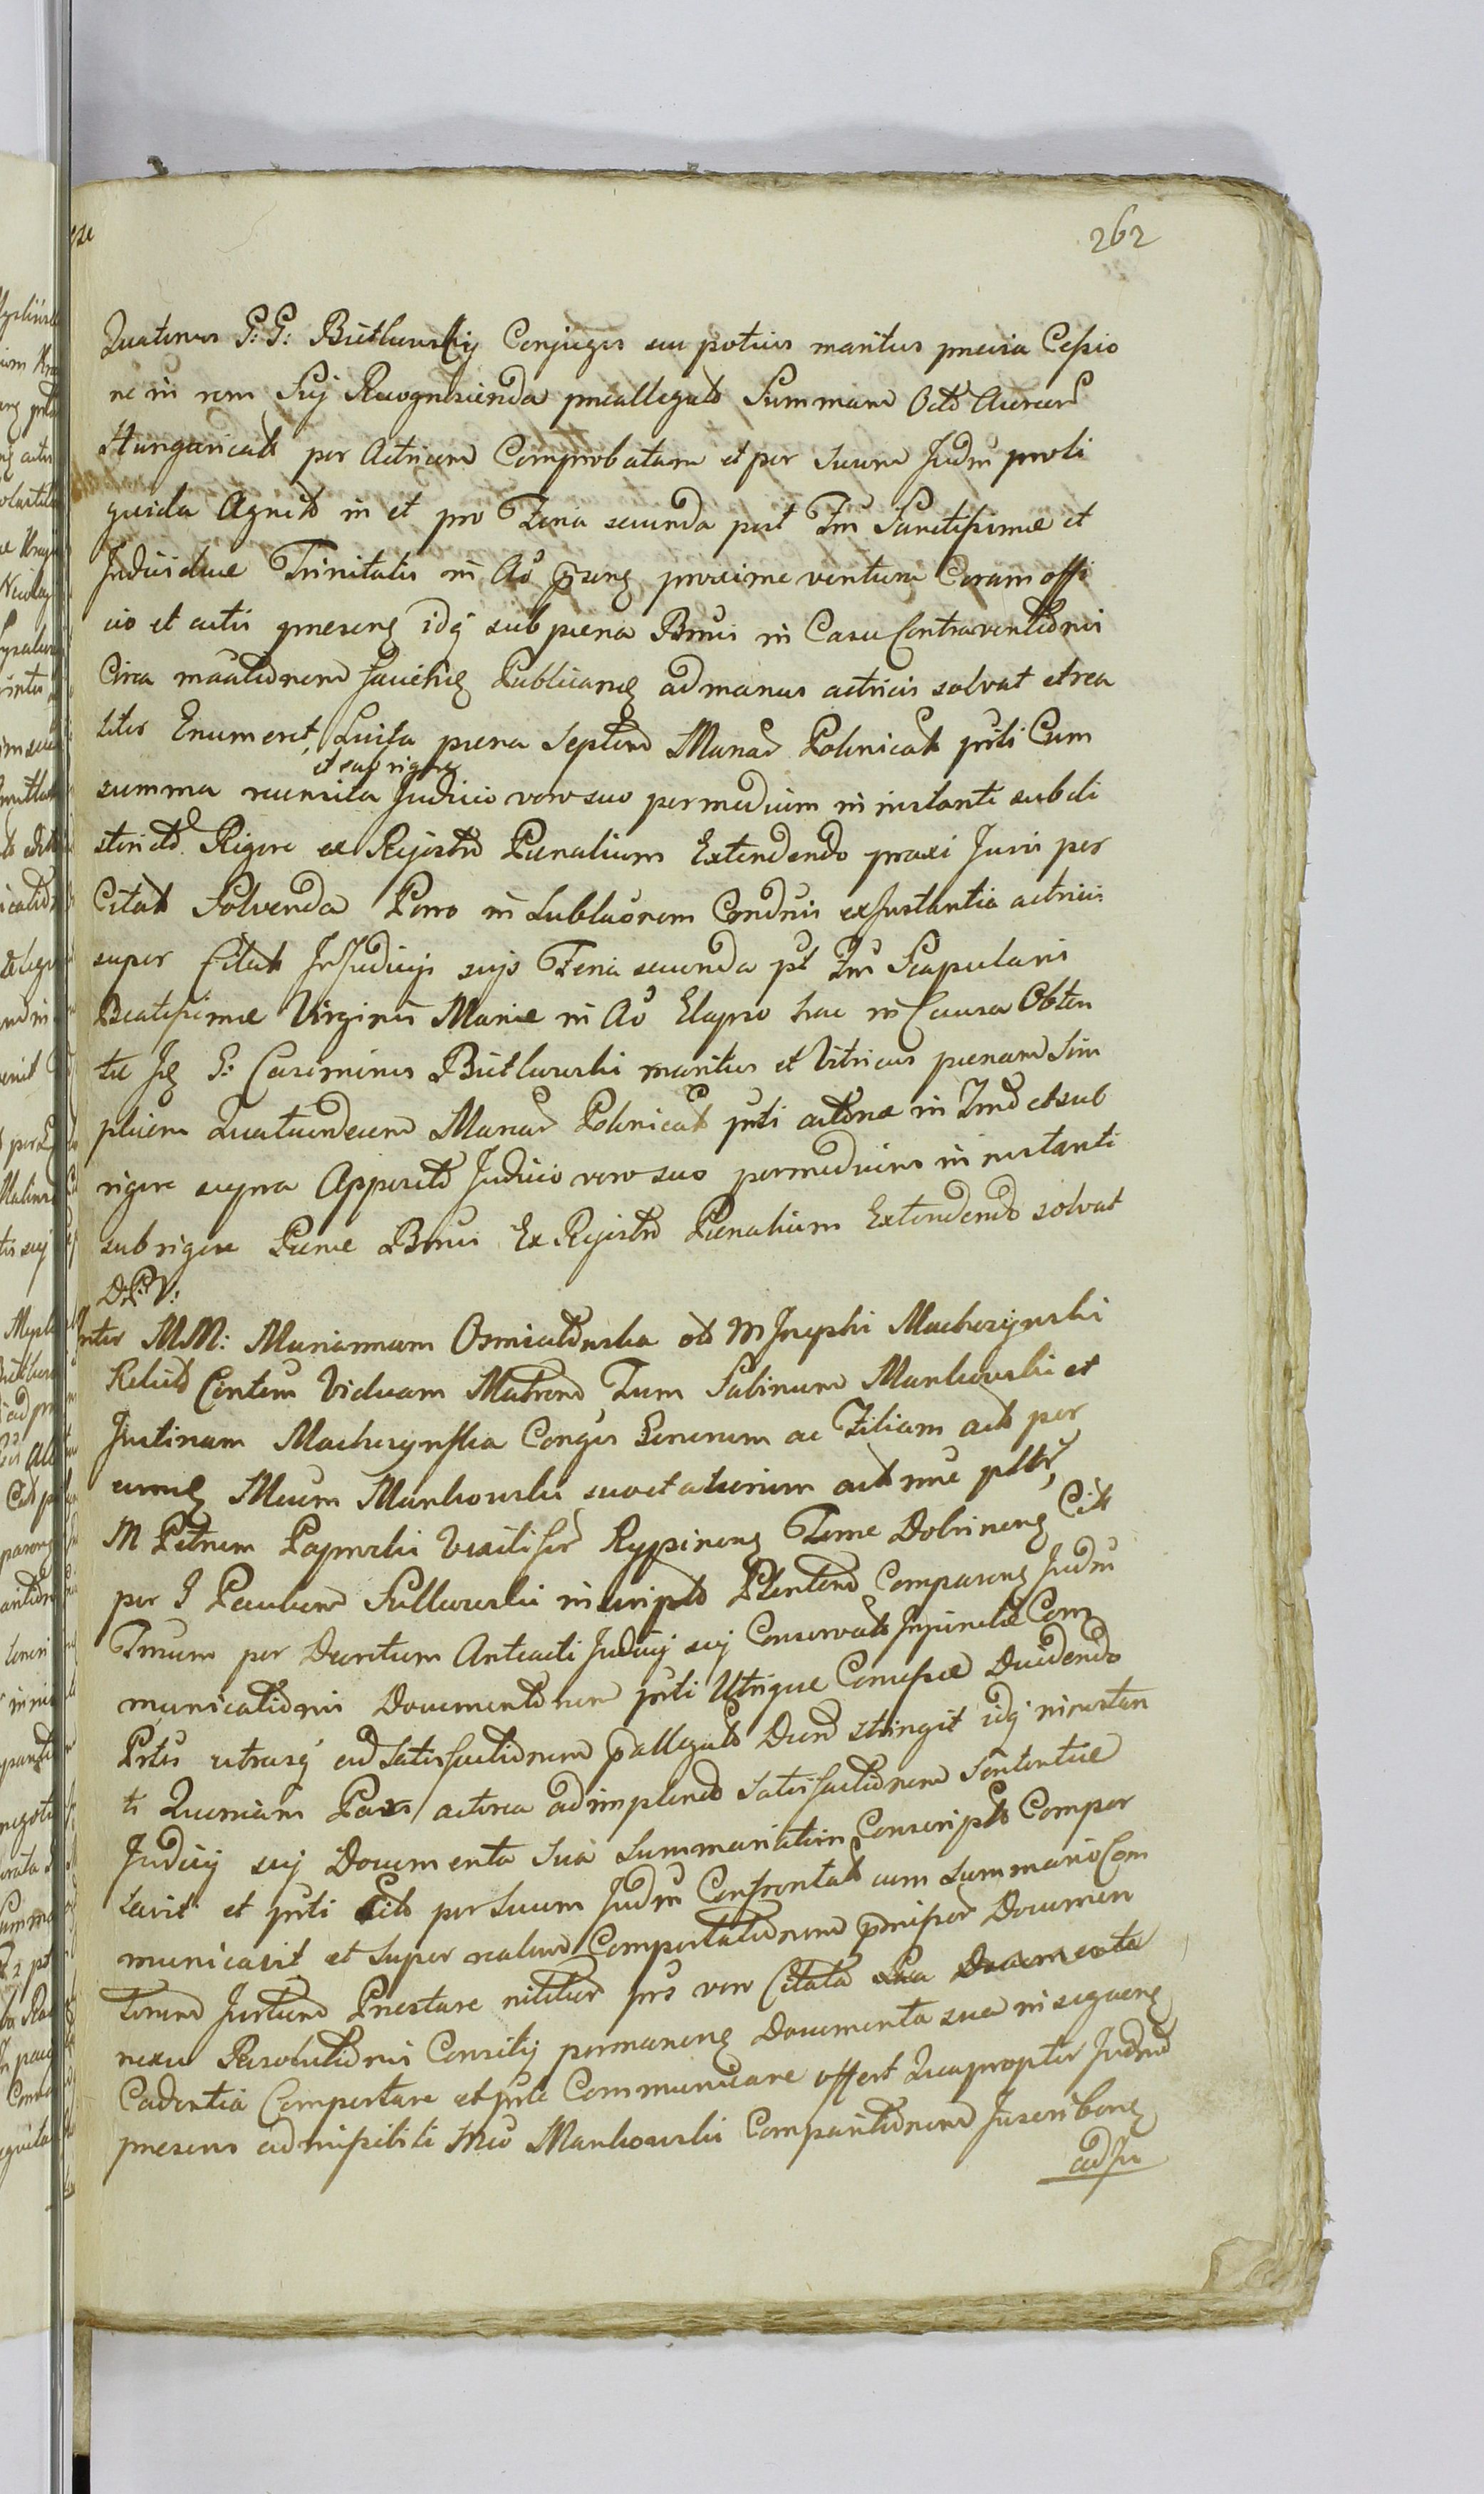 262
Quatenus G: G: Butlewskij Conjuges seu potius maritus prævia Cessio
ne in rem Suj Recognoscenda præallegatò Summam Octò Aureord
Hungaricalt per Actricem Comprobatam et per suum Judm proli
quida Agnitò in et pro Feria secunda post Fm Sanctissimæ et
Individuæ Trinitatis in Aõ præsenq proxime ventura Coram offi
cio et actis præsenq idq sub pæna Bnnis in Casu Contraventionis
Circa maationem Saucitiq Publicanq ad manus actricis solvat et rea
liter Enumeret, Luita pæna Septem Marcar Polonicalt prti Cum
et sub rigore
summa recensita Judicio vero suo permedium in instanti sub di
stricto Rigore ex Rejestro Pænalium Extendendo praxi Juris per
Citat Solvenda Porro in Sublaonem Condnis ex Instantia actricis
super Citat In Judicijs sujs Feria secunda pt Fm Scapularis
Beatissimæ Virginis Mariæ in Aõ Elapso hac in Causa Obten
tæ Jq G: Casimirus Butlewski maritus et Vitricus pænam Sim
plicem Quatuordecim Marcar Polonicalt prti actoræ in Fmo et sub
rigore supra Apposito Judicio vero suo permedium in instanti
sub rigore Pænæ Bnnis Ex Rejestro Pænalium Extendendo solvat
D: P: V:
Inter MM: Mariannam Osmiałowska olt M Josephi Machczynski
Relict Contem Viduam Matrem Tum Sabinum Mankowski et
Justinam Machczynska Conges Generum ac Filiam act per
eumq Mcum Mankowski suo et aliorum act nne pltr,
M Petrum Papieski Vexillifer Rypinenq Terræ Dobrinenq Cit
per G Paulum Sullowski in scripto Plentem Comparenq Judm
Trnum per Decretum Anteacti Judicij suj Conservat Injunctæ Com
municationis Documentorum prti Utrique Concessæ Ducendo
Prtes utrasq ad Satisfactionem pallegat Decrd stringit idq in instan
ti Quoniam Pars actorea adimplend Satisfactionem Sententiæ
Judicij suj Documenta Sua Summariatim Conscripta Compor
tavit et prti Cito per suum Judm Confrontat cum Summario Com
municavit et Super realem Comportationem præmissor Documen
torum Jurtum Præstare nititur prs vero Citata sua Documenta
nexu Resolutionis Consilij permanenq Documenta sua in sequenq
Cadentia Comportare et prti Communicare offert Quapropter Judm
præsens admissibili Mco Mankowski Comparitionem Inscribenq
ad Ju